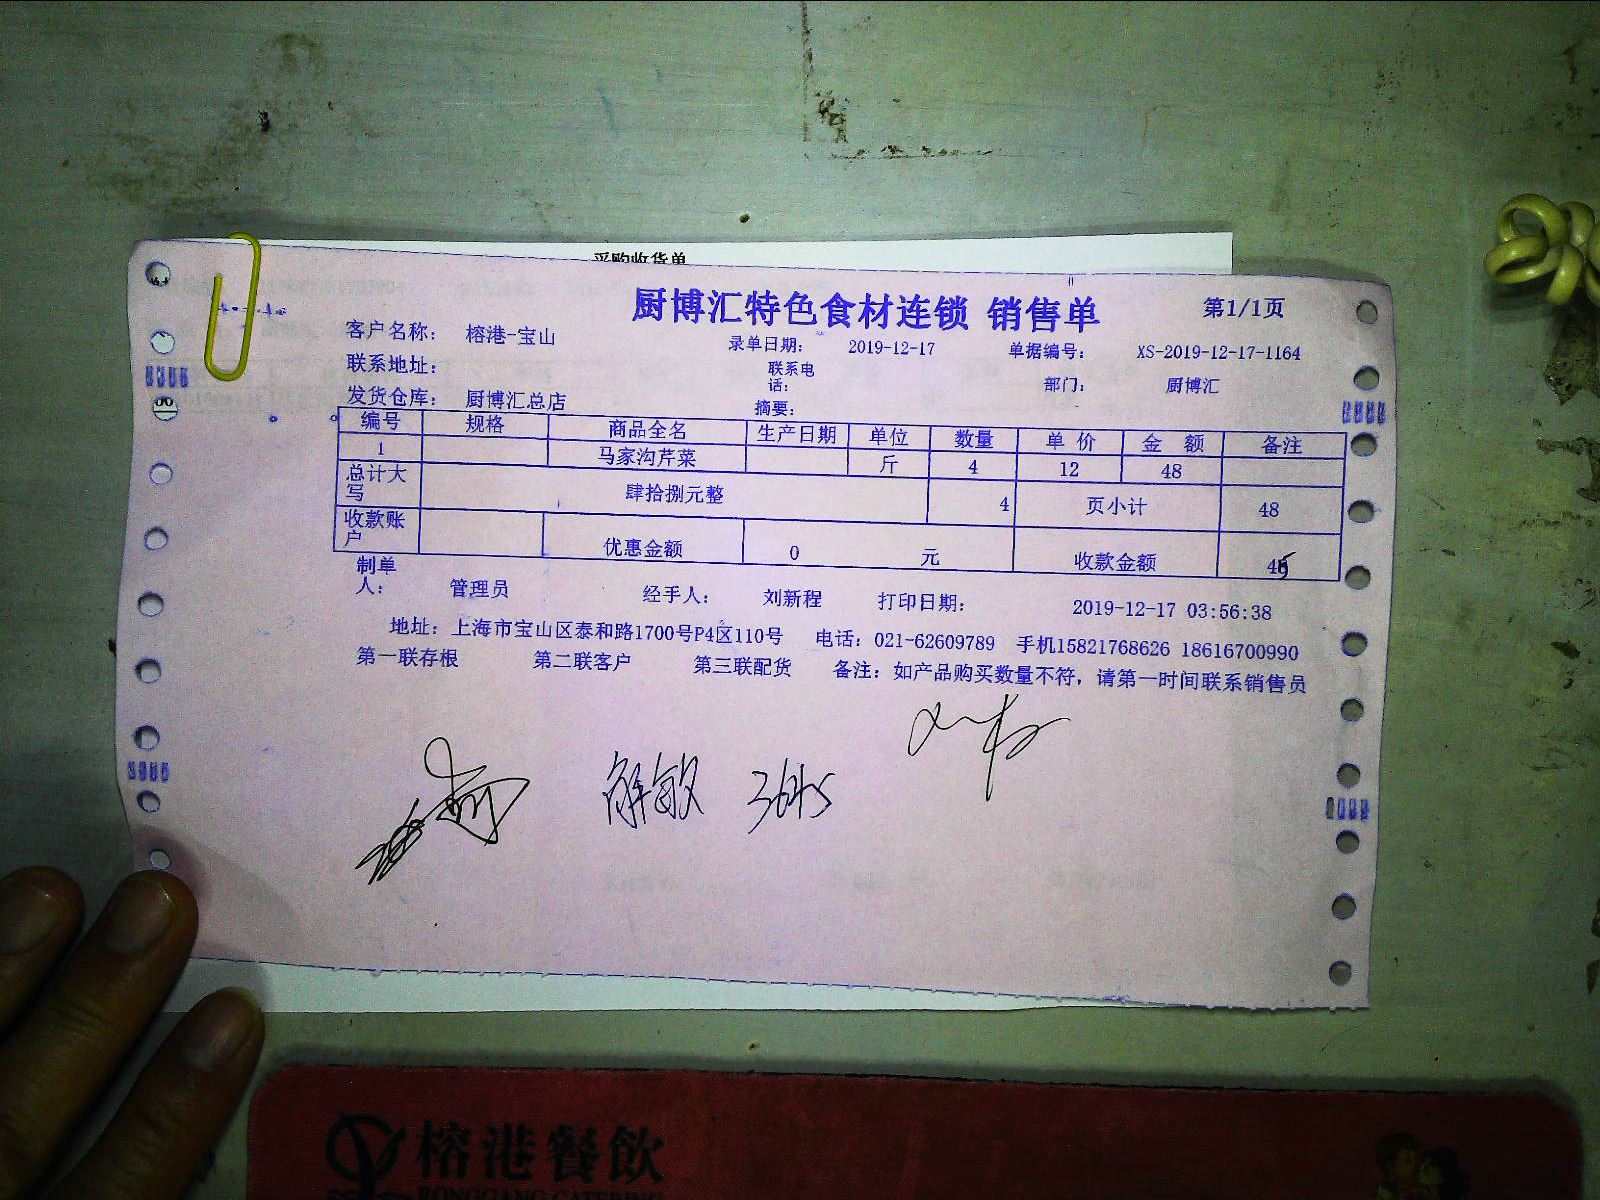 采购收货单
厨博汇特色食材连锁 销售单 第1/1页
客户名称： 榕港-宝山 录单日期： 2019-12-17 单据编号： XS-2019-12-17-1164
联系地址： 联系电话： 部门： 厨博汇
发货仓库： 厨博汇总店 摘要：
编号 规格 商品全名 生产日期 单位 数量 单价 金额 备注
1 马家沟芹菜 斤 4 12 48
总计大写 肆拾捌元整 4 页小计 48
收款账户 优惠金额 0 元 收款金额
制单人： 管理员 经手人： 刘新程 打印日期： 2019-12-17 03:56:38
地址：上海市宝山区泰和路1700号P4区110号 电话：021-62609789 手机15821768626 18616700990
第一联存根 第二联客户 第三联配货 备注：如产品购买数量不符，请第一时间联系销售员
解敏
榕港餐飲
RONGGANG CATERING